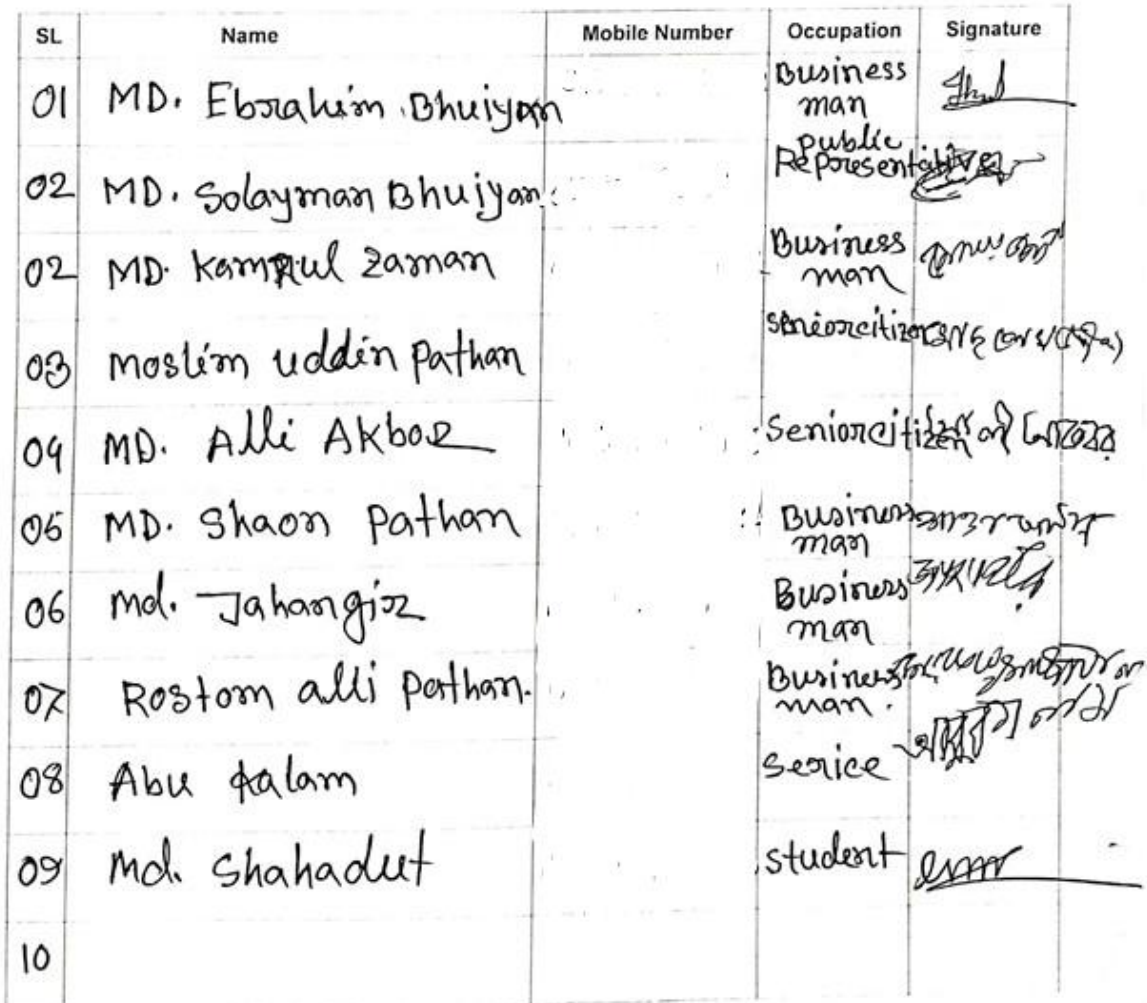 SL Name Mobile Number Occupation Signature
01 MD. Ebrahim Bhuiyan Business man
02 MD. Solayman Bhuiyan public Reporesentative
02 MD. Kamrul Zaman Business man
03 Moslim uddin Pathan Seniorcitizen
04 MD. Alli AKbor Seniorcitizen
05 MD. Shaon Pathan Business man
06 Md. Jahangir Business man
07 Rostom alli Pathan. Business man.
08 Abu Kalam Serice
09 Md. Shahadut student
10